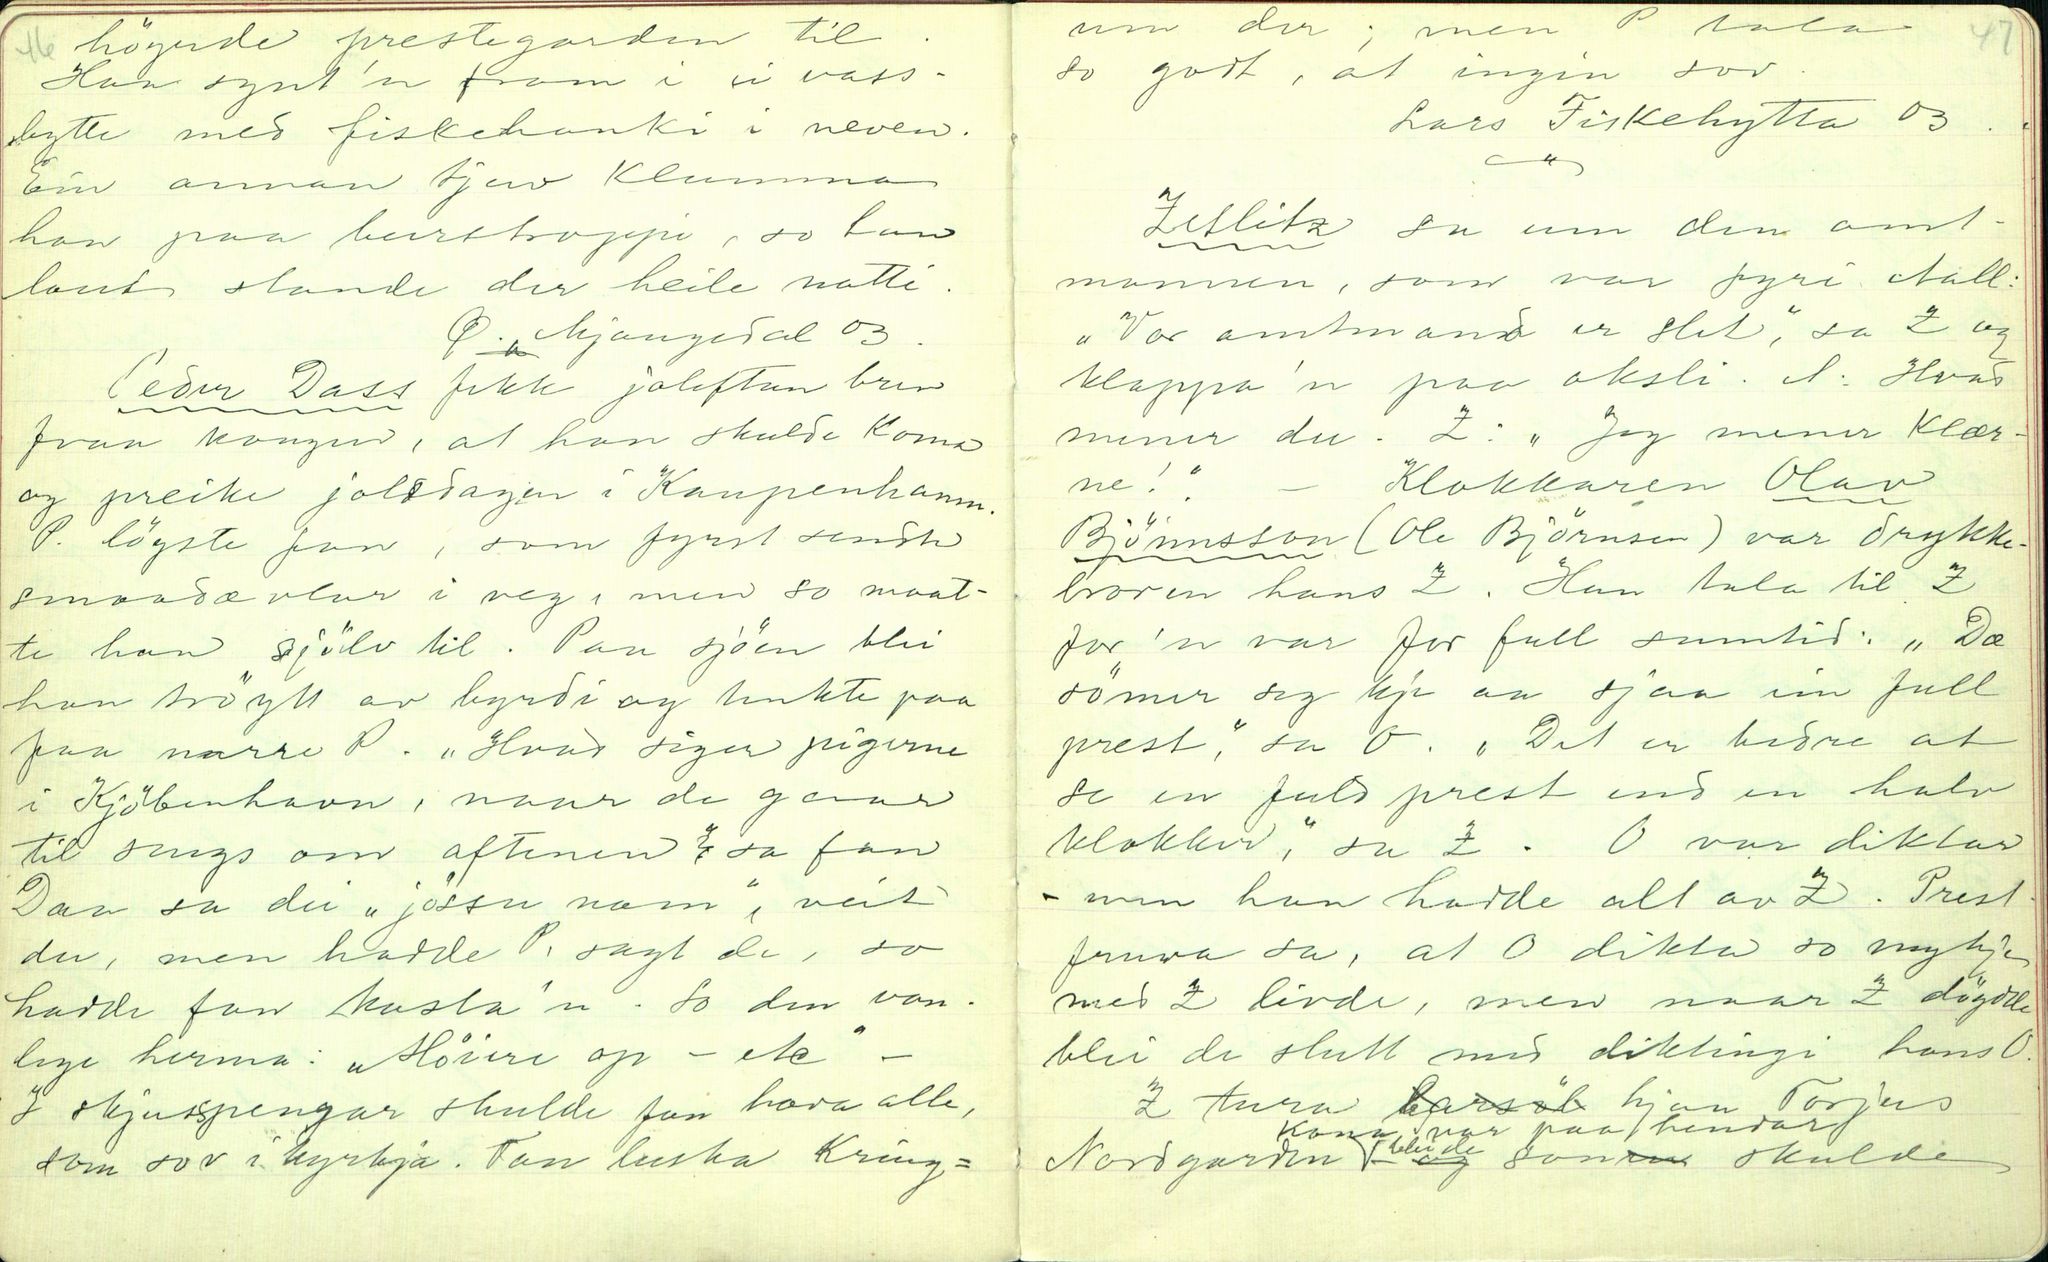 46
högrde prestegarden til.
Han synt'n fram i ei vass-
bytte med fiskehanki i neven.
Ein annan tjuv klumma
han paa burstroppi, so han
laut stande der heile natti.
O. Mjaugedal 03.
Peder Dass fekk joleftan brev
fraa kongen, at han skulde koma
og preike joldagen i Kaupenhamn.
P. löyste fan, som fyrst sendte
smaadævlar i veg, men so maat-
te han sjölv til. Paa sjöen blei
han tröytt av byrdi og tenkte paa
faa narre P. „Hvad siger pigerne
i Kjöbenhavn, naar de gaar
til sengs om aftenen“? sa fan
Daa sa dei „jössu namn“, veit
du, men hadde P. sagt de, so
hadde fan kasta'n. So den van-
lege herma: „Höiere op – etc“ –
I skjusspengar skulde fan hava alle,
som sov i kyrkja. Fan luska kring=
47
um der; men P tala
so godt, at ingin sov.
Lars Fiskehytta 03.
— „ —
Zetlitz sa um den amt-
mannen, som var fyri Aall:
„Vor amtmand er slet“, sa Z og
klappa'n paa aksli. A: Hvad
mener du. Z: „Jeg mener klær-
ne!“. – Klokkaren Olav
Björnsson (Ole Björnsen) var drykke-
broren hans Z. Han tala til Z
for'n var for full sumtid: „Dæ
sömer seg kje aa sjaa ein full
prest“, sa O. „Det er bedre at
se en fuld prest end en halv
klokker“, sa Z. O var diktar
- men han hadde alt av Z. Prest-
fruva sa, at O dikta so mykje
med Z livde, men naar Z döydde
blei de slutt med diktingi hans O.
Z tura barsöl hjaa Torjus
kona var paa hendar
Nordgarden blei de og sonen skulde